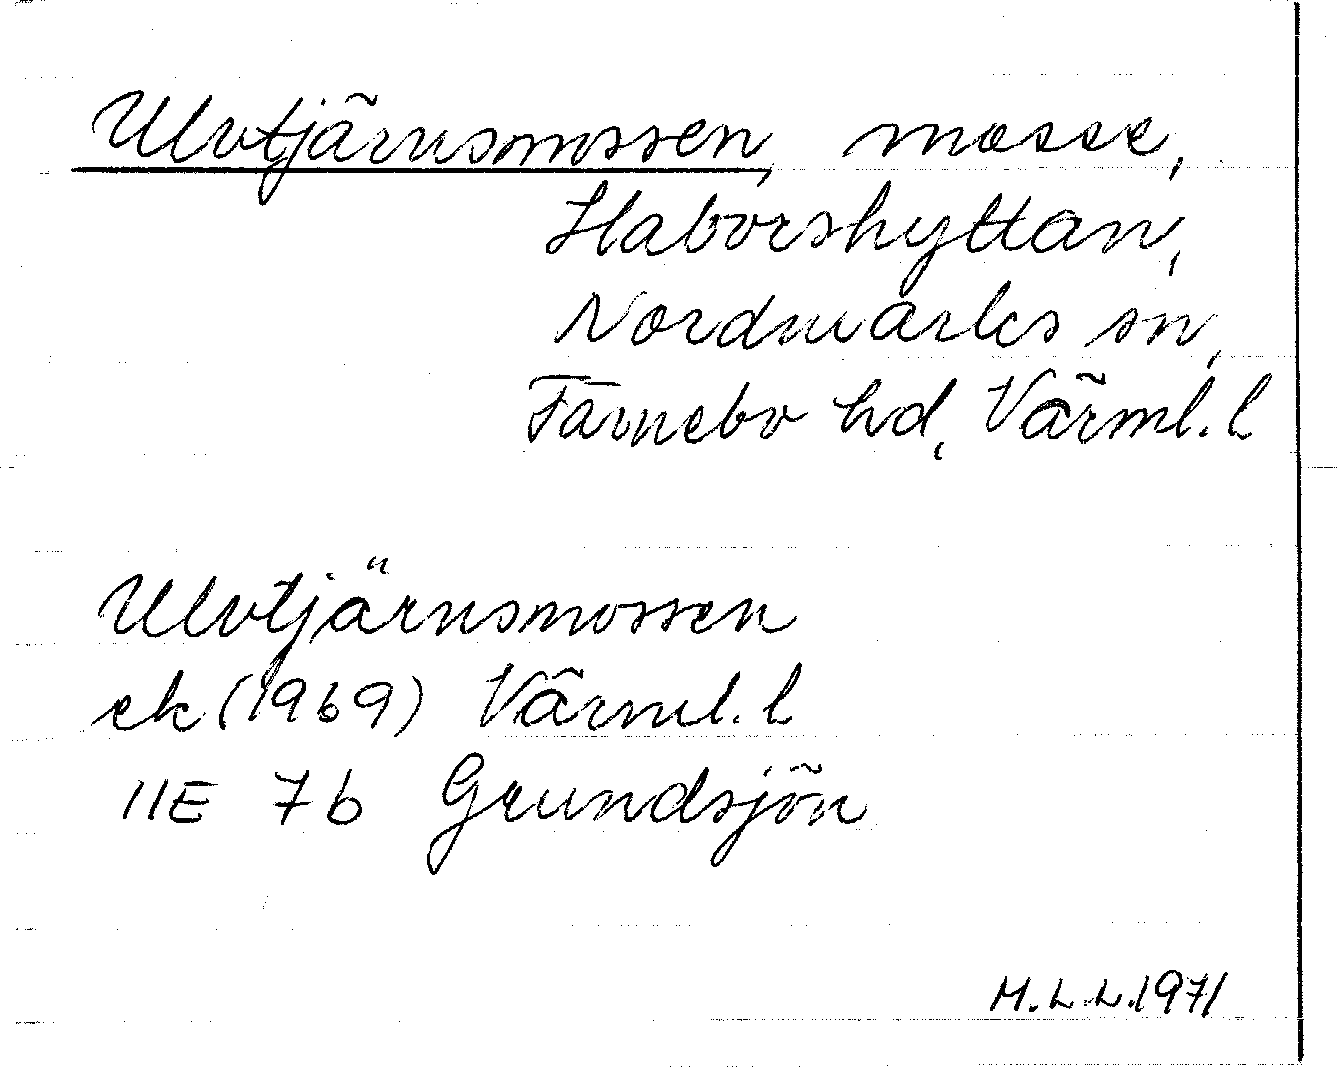 Ulvtjärnsmossen, mosse,
Haborshyttan,
Nordmarks sn,
Färnebo hd, Värml. l
Ulvtjärnsmossen
ek (1969) Värml. l
11E 7b Grundsjön
M.L.L. 1971